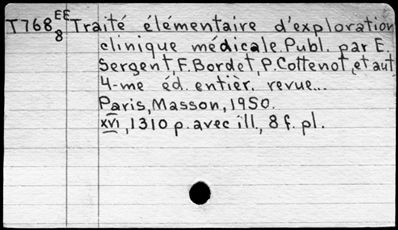 T768 EE/8 Traité élémentaire d'exploration
clinique médicale. Publ. par E.
Sergent, F. Bordet, P. Cottenot, et aut.
4-me éd. entièr. revue...
Paris, Masson, 1950.
xvi, 1310 p. avec ill., 8 f. pl.